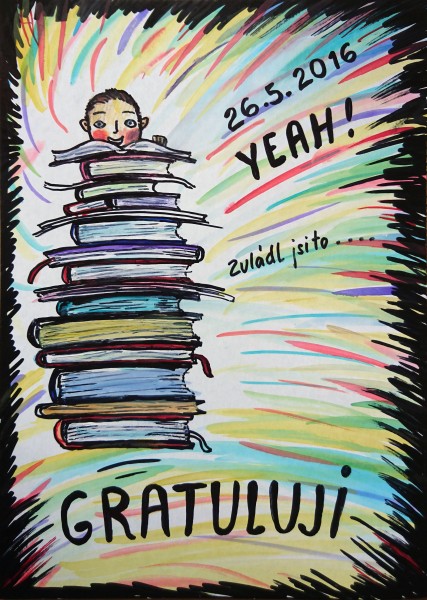 26.5.2016
YEAH!
Zvládl jsi to.....
GRATULUJI